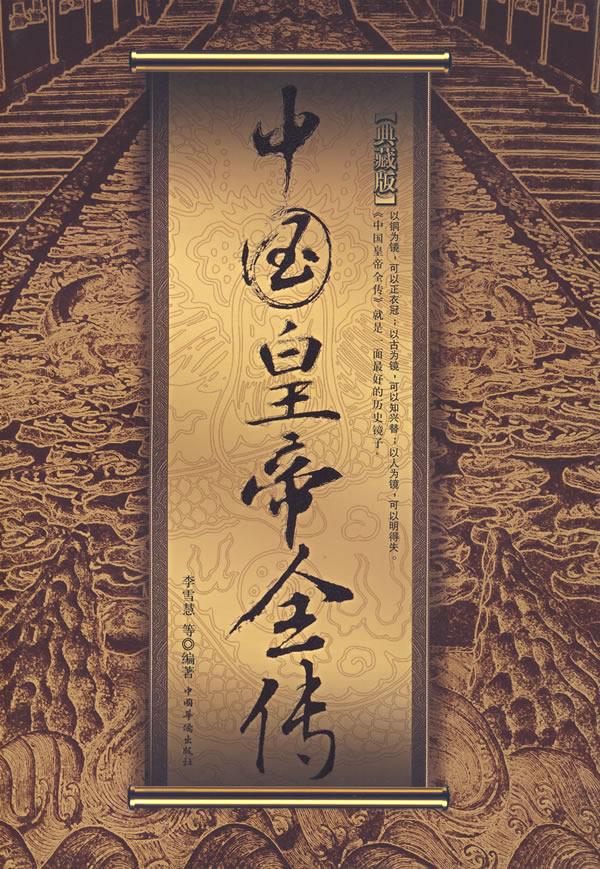 【典藏版】
以铜为镜，可以正衣冠；以古为镜，可以知兴替；以人为镜，可以明得失。
《中国皇帝全传》就是一面最好的历史镜子。
中国皇帝全传
李雪慧 等◎编著
中国华侨出版社